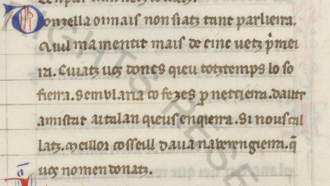 Donzella oimais non siatz tant parlieira.
Q̃uil ma mentit mais de cinc uetz pͥmei
ra. Cuiatz uos dones qieu totztemps lo so
fieira. Semblaria co fezes ꝑ nettieira. dautr
amistat ai talan queus enqieira. Si nous cal
latz. Meillor cosseill dauan aberengieira. q̃
uos no men donatz.